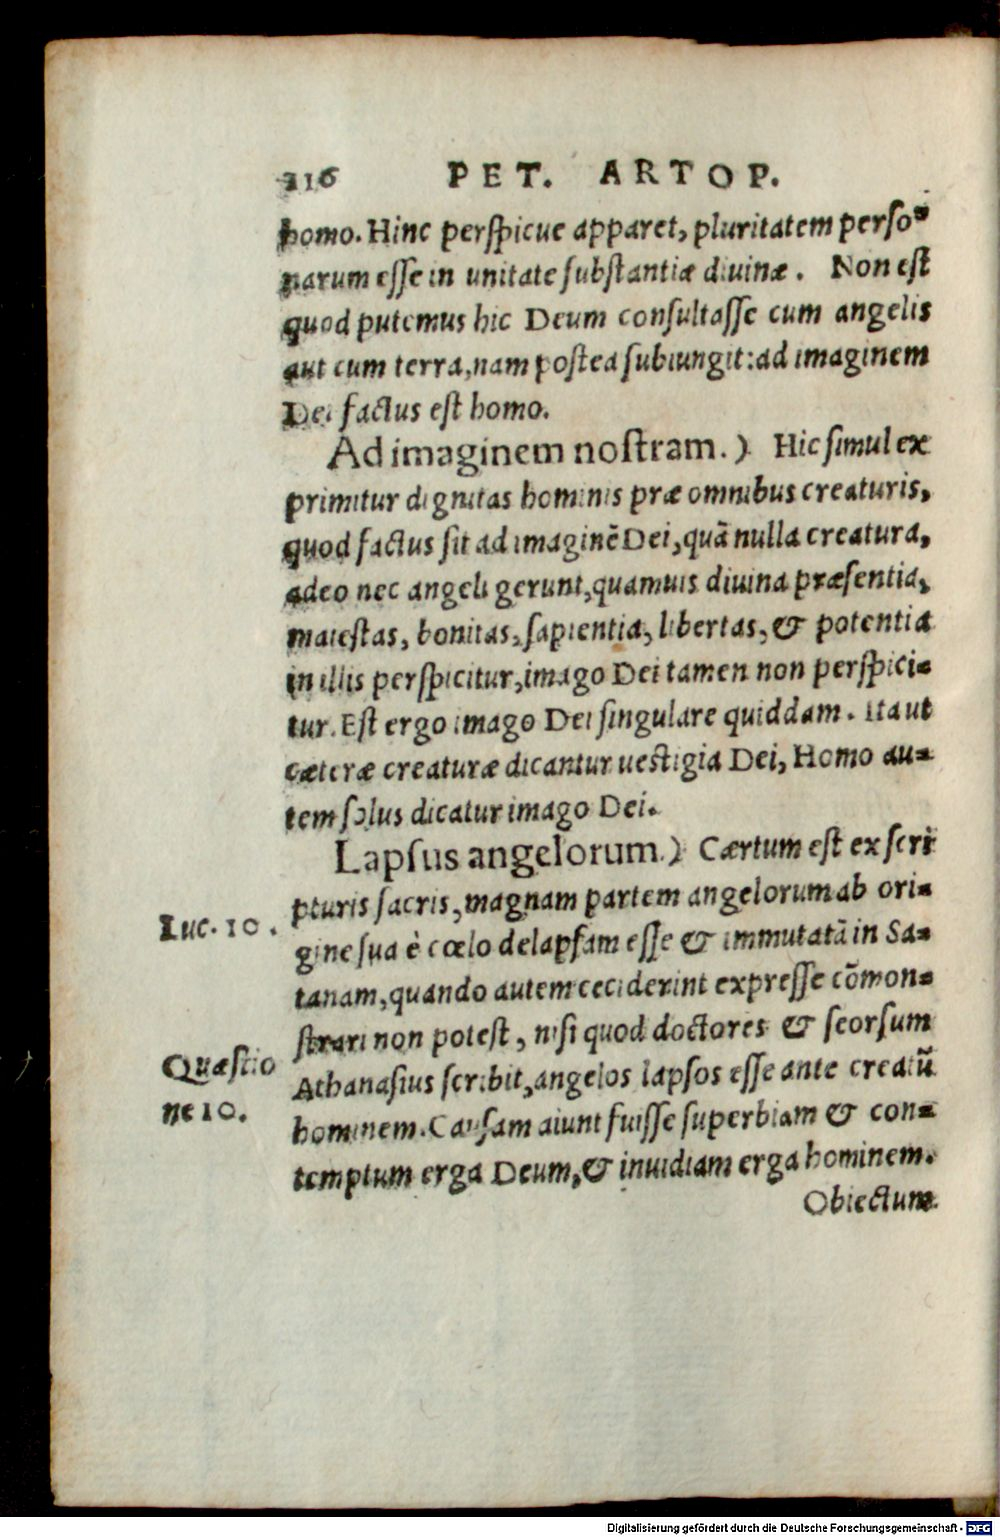 216 PET. ARTOP.
homo. Hinc perſpicue apparet, pluritatem perſo-
narum eſſe in unitate ſubſtantiæ diuinæ. Non eſt
quod putemus hic Deum conſultaſſe cum angelis
aut cum terra, nam poſtea ſubiungit: ad imaginem
Dei factus eſt homo.
Ad imaginem noſtram.) Hic ſimul ex
primitur dignitas hominis præ omnibus creaturis,
quod factus ſit ad imaginē Dei, quā nulla creatura,
adeo nec angeli gerunt, quamuis diuina præſentia,
maieſtas, bonitas, ſapientia, libertas, & potentia
in illis perſpicitur, imago Dei tamen non perſpici-
tur. Eſt ergo imago Dei ſingulare quiddam. Ita ut
cæteræ creaturæ dicantur ueſtigia Dei, Homo au-
tem ſolus dicatur imago Dei.
Lapſus angelorum.) Cærtum eſt ex ſcri
pturis ſacris, magnam partem angelorum ab ori-
Luc. 10.
gine ſua è cœlo delapſam eſſe & immutatā in Sa-
tanam, quando autem ceciderint expreſſe cōmon-
ſtrari non poteſt, niſi quod doctores & ſeorſum
Quæſtio
Athanaſius ſcribit, angelos lapſos eſſe ante creatū
ne 10.
hominem. Cauſam aiunt fuiſſe ſuperbiam & con-
temptum erga Deum, & inuidiam erga hominem.
Obiectum
Digitalisierung gefördert durch die Deutsche Forschungsgemeinschaft - DFG